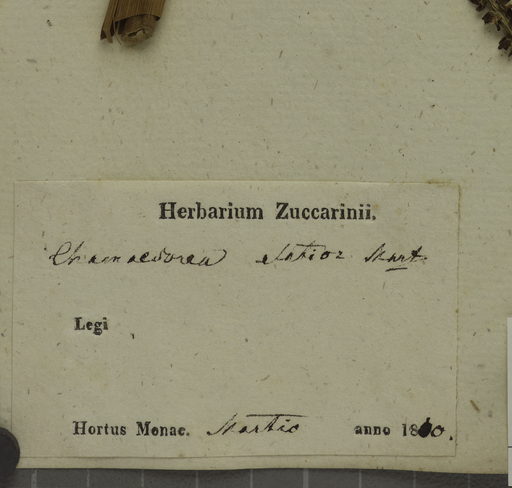 Herbarium Zuccarinii.
Chamaedorea elatior Mart.
Legi
Hortus Monac. Martio anno 1840.